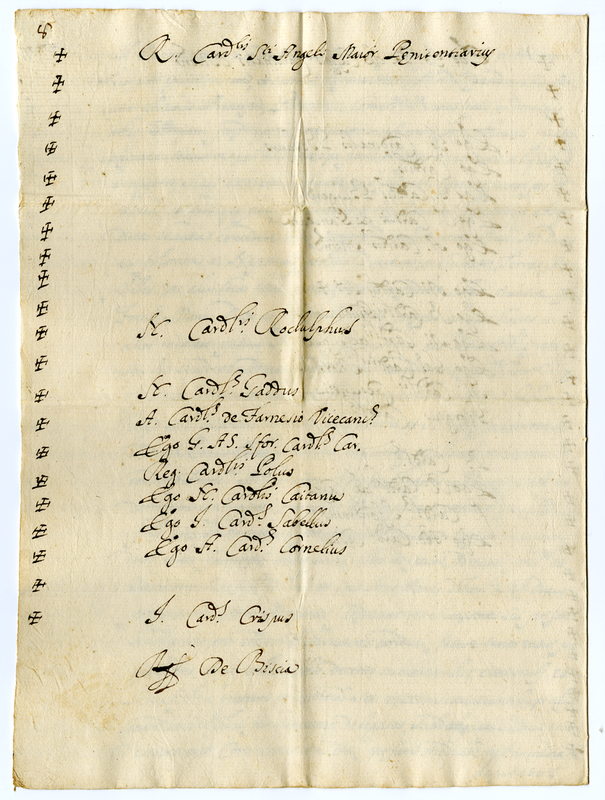 8
R. Card.lis S.ti Angeli Maior Penitentiarius
N. Card.lis Rodulphus
N. Card.lis Gaddus
A. Card.lis de Farnesio Vicecanc.s
Ego G. As. Sfor. Card.lis Car.
Reg. Card.lis Polus
Ego N. Card.lis Caitanus
Ego J. Card.s Sabellus
Ego A. Card.s Cornelius
J. Card.s Crispus
De Brescia